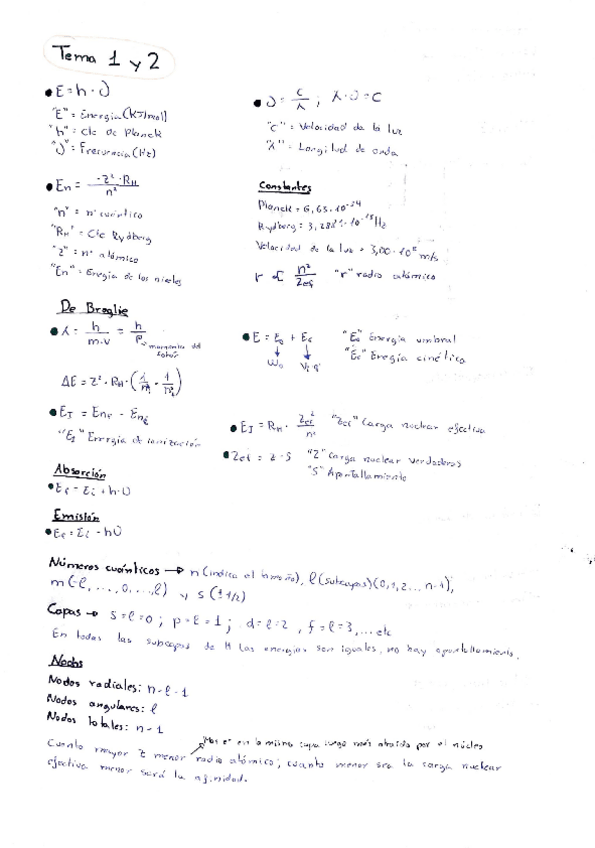 Tema 1 y 2
• E = h · ν
"E" = Energia (KJ/mol)
"h" = Cte de Planck
"ν" = Frecuencia (Hz)
• ν = c/λ ; λ · ν = c
"c" = Velocidad de la luz
"λ" = Longitud de onda
• En = -Z² · R_H / n²
"n" = nº cuántico
"R_H" = Cte Rydberg
"Z" = nº atómico
"En" = Energia de los niveles
Constantes
Planck = 6,63 · 10⁻³⁴
Velocidad de la luz = 3,00 · 10⁸ m/s
r ∝ n²/Zef "r" radio atómico
De Broglie
• λ = h/m·v = h/p
ΔE = Z² · R_H · (1/n² - 1/n²)
• E = E₀ + Ec "E₀" Energia umbral
"Ec" Energia cinética
W₀
• E_I = En_f - En_i
"E_I" Energia de ionización
• E_I = R_H · Zef²/n² "Zef" Carga nuclear efectiva
• Zef = Z - S "Z" Carga nuclear verdadera
"S" Apantallamiento
Absorción
• E_f = E_i + hν
Emisión
• E_f = E_i - hν
Números cuánticos → n (indica el tamaño), ℓ (subcapas) (0,1,2...n-1),
m (-ℓ, ..., 0, ..., ℓ) y s (±1/2)
Capas → s = ℓ = 0 ; p = ℓ = 1 ; d = ℓ = 2 , f = ℓ = 3, ... etc
En todas las subcapas de H las energias son iguales, no hay apantallamiento.
Nodos
Nodos radiales: n - ℓ - 1
Nodos angulares: ℓ
Nodos totales: n - 1
Mas e⁻ en la misma capa luego más atraido por el núcleo
Cuanto mayor Z menor radio atómico; cuanto menor sea la carga nuclear
efectiva menor será la afinidad.